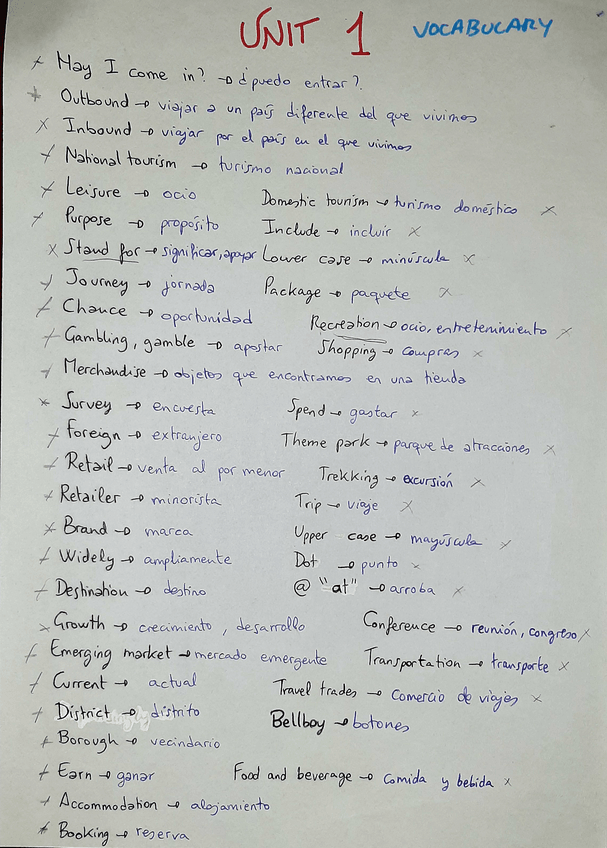 UNIT 1 VOCABULARY
May I come in? → ¿puedo entrar?
Outbound → viajar a un país diferente del que vivimos
Inbound → viajar por el país en el que vivimos
National tourism → turismo nacional
Leisure → ocio Domestic tourism → turismo doméstico
Purpose → propósito Include → incluir
Stand for → significar, apoyar Lower case → minúscula
Journey → jornada Package → paquete
Chance → oportunidad Recreation → ocio, entretenimiento
Gambling, gamble → apostar Shopping → compras
Merchandise → objetos que encontramos en una tienda
Survey → encuesta Spend → gastar
Foreign → extranjero Theme park → parque de atracciones
Retail → venta al por menor Trekking → excursión
Retailer → minorista Trip → viaje
Brand → marca Upper case → mayúscula
Widely → ampliamente Dot → punto
Destination → destino @ "at" → arroba
Growth → crecimiento, desarrollo Conference → reunión, congreso
Emerging market → mercado emergente Transportation → transporte
Current → actual Travel trades → comercio de viajes
District → distrito Bellboy → botones
Borough → vecindario
Earn → ganar Food and beverage → comida y bebida
Accommodation → alojamiento
Booking → reserva